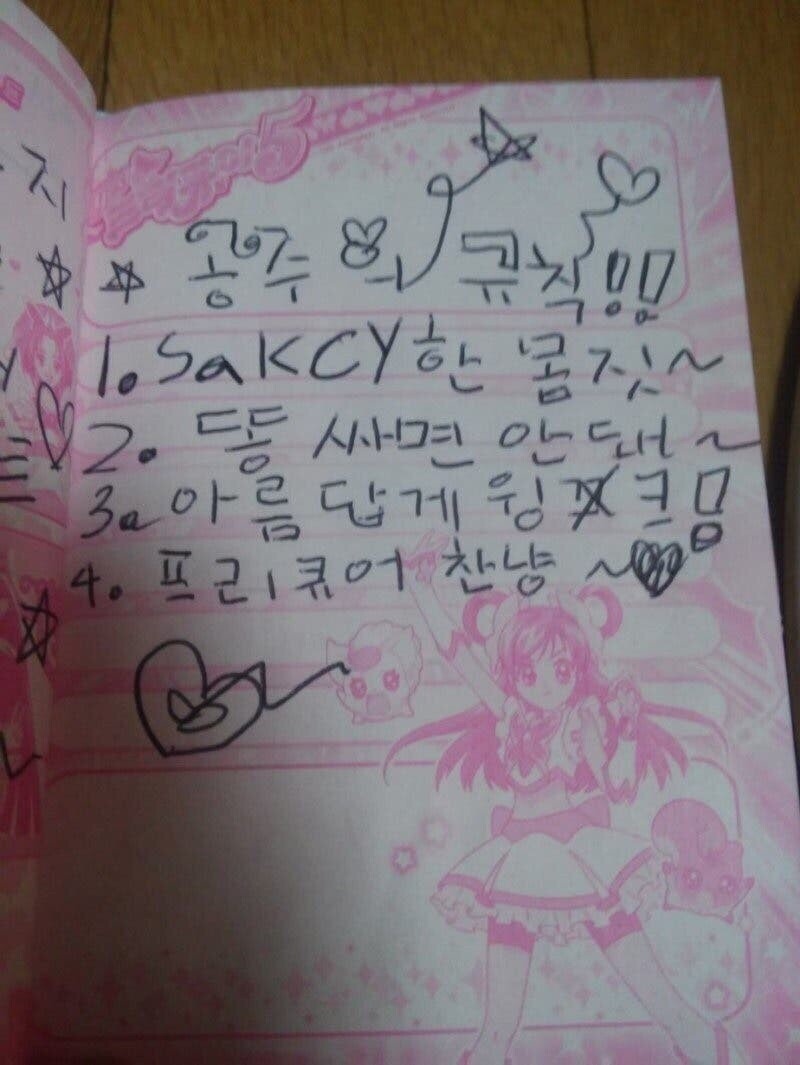 프리큐어5
☆ ☆ 공주의 규칙!!
1. SaKCY한 몸짓~
2. 똥 싸면 안돼~
3. 아름답게 윙크!
4. 프리큐어 찬냥~♥